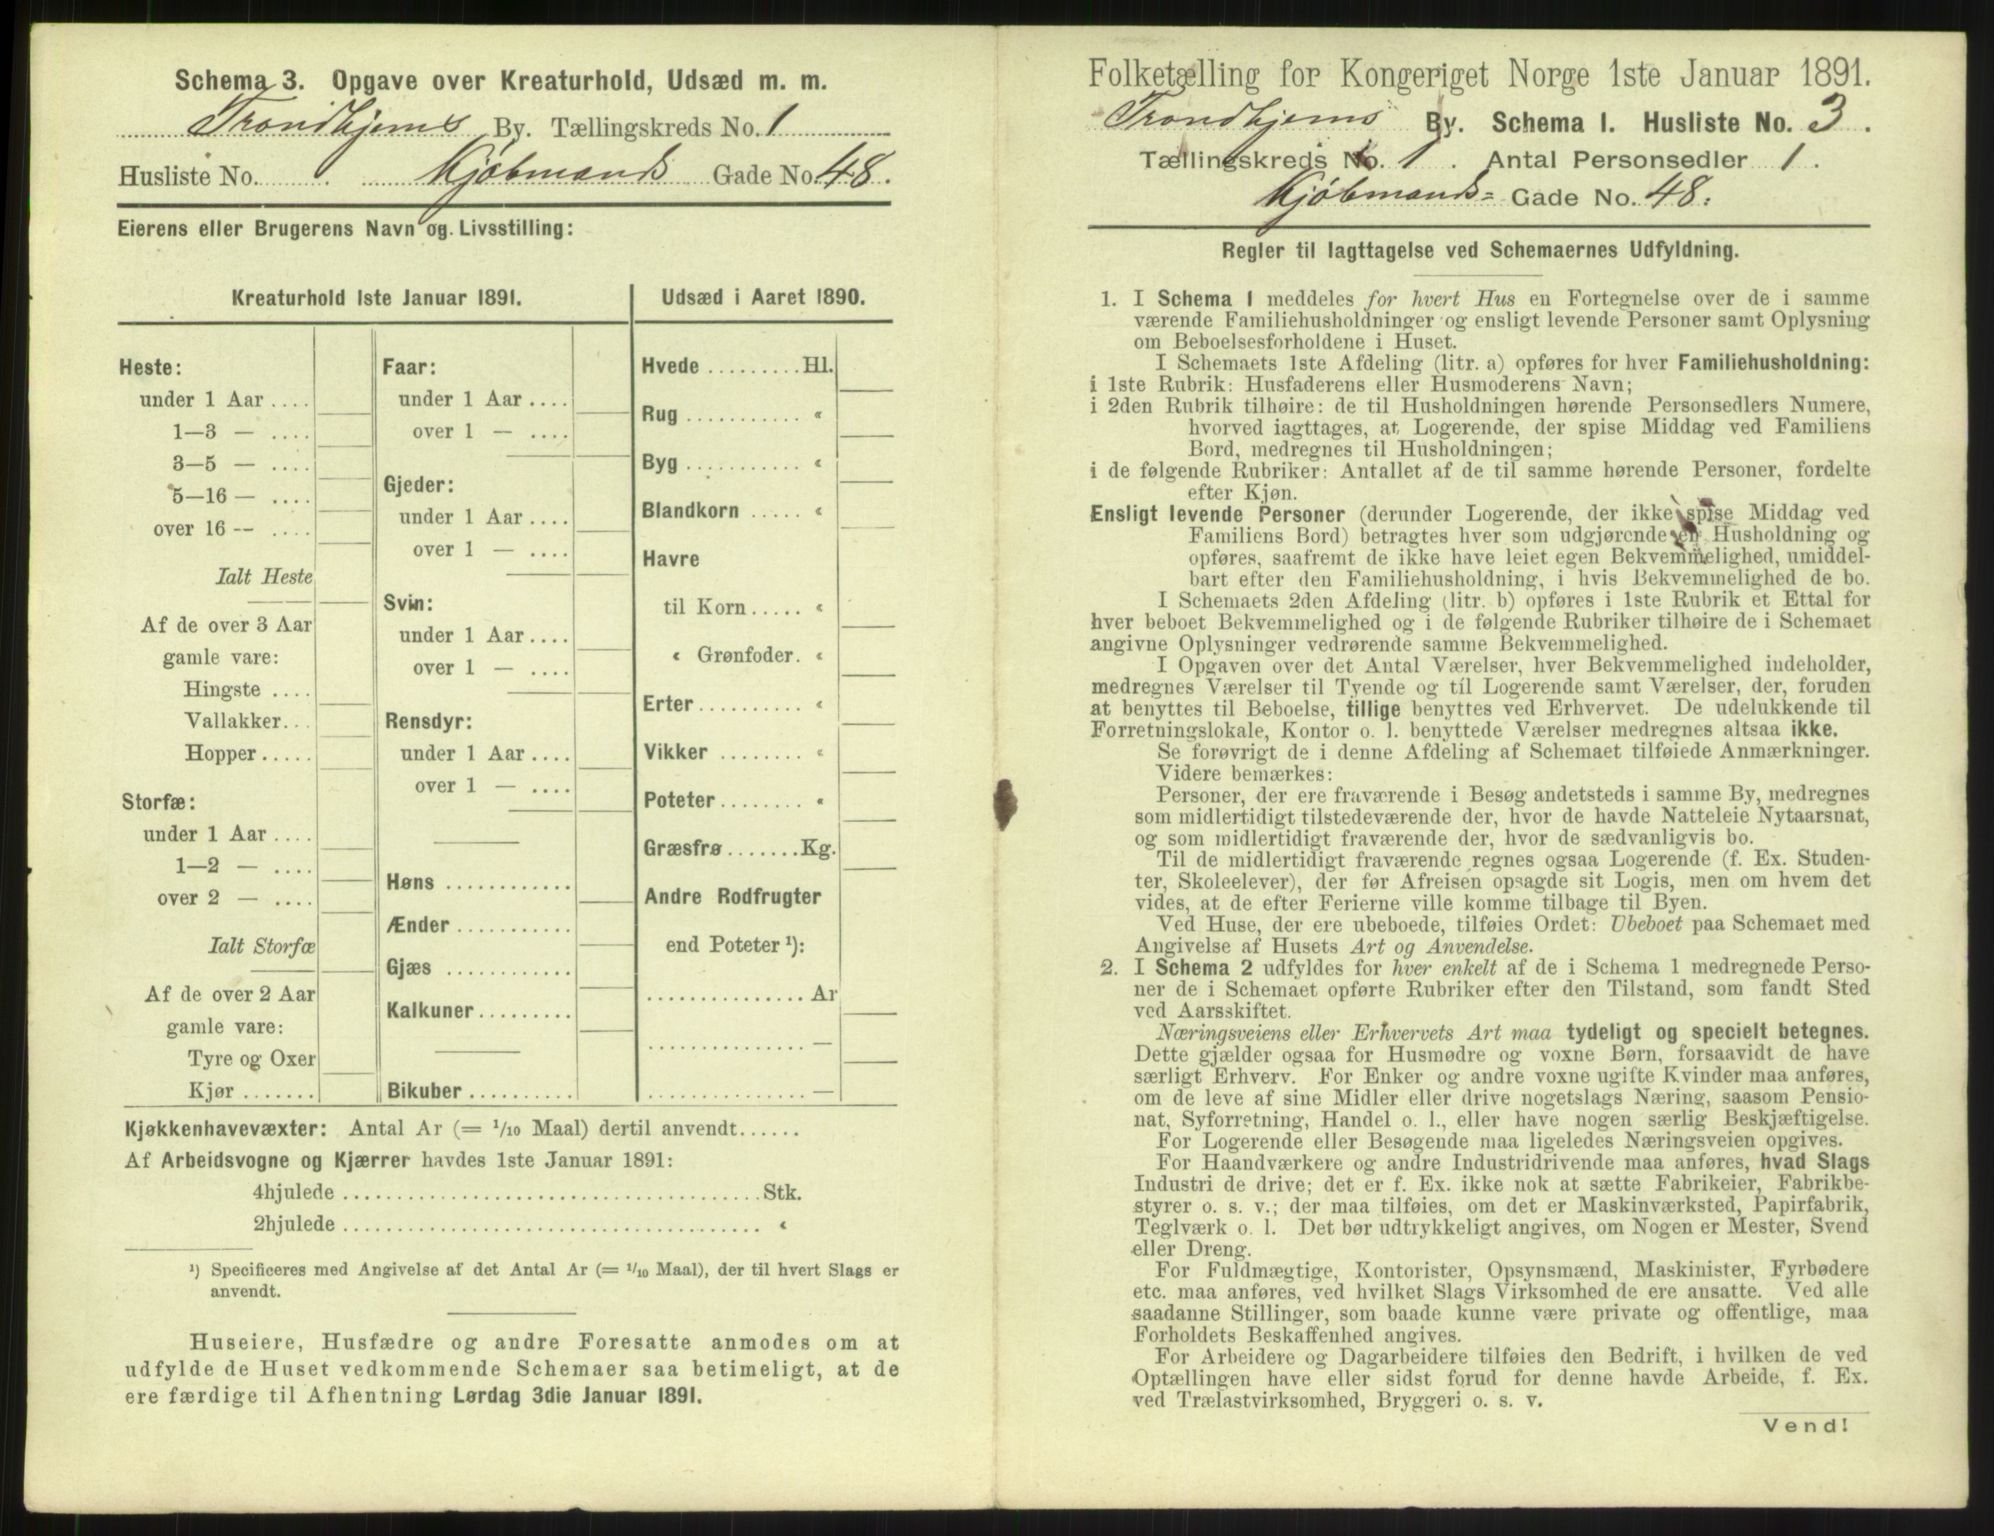 Schema 3. Opgave over Kreaturhold, Udsæd m. m.
Trondhjems By. Tællingskreds No. 1
Husliste No. Kjøbmands Gade No. 48.
Eierens eller Brugerens Navn og Livsstilling:
Kreaturhold 1ste Januar 1891.
Heste:
under 1 Aar ....
1—3 — ....
3—5 — ....
5—16 — ....
over 16 -- ....
Ialt Heste
Af de over 3 Aar
gamle vare:
Hingste ....
Vallakker...
Hopper.....
Storfæ:
under 1 Aar ....
1—2 — ....
over 2 — ....
Ialt Storfæ
Af de over 2 Aar
gamle vare:
Tyre og Oxer
Kjør.......
Faar:
under 1 Aar ....
over 1 — ....
Gjeder:
under 1 Aar ....
over 1 — ....
Svin:
under 1 Aar ....
over 1 — ....
Rensdyr:
under 1 Aar ....
over 1 — ....
Høns ............
Ænder ...........
Gjæs ............
Kalkuner.........
Bikuber ..........
Udsæd i Aaret 1890.
Hvede .........Hl.
Rug ........... «
Byg ........... «
Blandkorn ..... «
Havre
til Korn ..... «
« Grønfoder. «
Erter.......... «
Vikker ........ «
Poteter........ «
Græsfrø .......Kg.
Andre Rodfrugter
end Poteter ¹):
............... Ar
............... —
............... —
Kjøkkenhavevæxter: Antal Ar (= 1/10 Maal) dertil anvendt......
Af Arbeidsvogne og Kjærrer havdes 1ste Januar 1891:
4hjulede ........................................Stk.
2hjulede ........................................ «
¹) Specificeres med Angivelse af det Antal Ar (= 1/10 Maal), der til hvert Slags er
anvendt.
Huseiere, Husfædre og andre Foresatte anmodes om at
udfylde de Huset vedkommende Schemaer saa betimeligt, at de
ere færdige til Afhentning Lørdag 3die Januar 1891.
Folketælling for Kongeriget Norge 1ste Januar 1891.
Trondhjems By. Schema 1. Husliste No. 3.
Tællingskreds No. 1. Antal Personsedler 1.
Kjøbmands- Gade No. 48.
Regler til Iagttagelse ved Schemaernes Udfyldning.
1. I Schema 1 meddeles for hvert Hus en Fortegnelse over de i samme
værende Familiehusholdninger og ensligt levende Personer samt Oplysning
om Beboelsesforholdene i Huset.
I Schemaets 1ste Afdeling (litr. a) opføres for hver Familiehusholdning:
i 1ste Rubrik: Husfaderens eller Husmoderens Navn;
i 2den Rubrik tilhøire: de til Husholdningen hørende Personsedlers Numere,
hvorved iagttages, at Logerende, der spise Middag ved Familiens
Bord, medregnes til Husholdningen;
i de følgende Rubriker: Antallet af de til samme hørende Personer, fordelte
efter Kjøn.
Ensligt levende Personer (derunder Logerende, der ikke spise Middag ved
Familiens Bord) betragtes hver som udgjørende en Husholdning og
opføres, saafremt de ikke have leiet egen Bekvemmelighed, umiddel-
bart efter den Familiehusholdning, i hvis Bekvemmelighed de bo.
I Schemaets 2den Afdeling (litr. b) opføres i 1ste Rubrik et Ettal for
hver beboet Bekvemmelighed og i de følgende Rubriker tilhøire de i Schemaet
angivne Oplysninger vedrørende samme Bekvemmelighed.
I Opgaven over det Antal Værelser, hver Bekvemmelighed indeholder,
medregnes Værelser til Tyende og til Logerende samt Værelser, der, foruden
at benyttes til Beboelse, tillige benyttes ved Erhvervet. De udelukkende til
Forretningslokale, Kontor o. l. benyttede Værelser medregnes altsaa ikke.
Se forøvrigt de i denne Afdeling af Schemaet tilføiede Anmærkninger.
Videre bemærkes:
Personer, der ere fraværende i Besøg andetsteds i samme By, medregnes
som midlertidigt tilstedeværende der, hvor de havde Natteleie Nytaarsnat,
og som midlertidigt fraværende der, hvor de sædvanligvis bo.
Til de midlertidigt fraværende regnes ogsaa Logerende (f. Ex. Studen-
ter, Skoleelever), der før Afreisen opsagde sit Logis, men om hvem det
vides, at de efter Ferierne ville komme tilbage til Byen.
Ved Huse, der ere ubeboede, tilføies Ordet: Ubeboet paa Schemaet med
Angivelse af Husets Art og Anvendelse.
2. I Schema 2 udfyldes for hver enkelt af de i Schema 1 medregnede Perso-
ner de i Schemaet opførte Rubriker efter den Tilstand, som fandt Sted
ved Aarsskiftet.
Næringsveiens eller Erhvervets Art maa tydeligt og specielt betegnes.
Dette gjælder ogsaa for Husmødre og voxne Børn, forsaavidt de have
særligt Erhverv. For Enker og andre voxne ugifte Kvinder maa anføres,
om de leve af sine Midler eller drive nogetslags Næring, saasom Pensio-
nat, Syforretning, Handel o. l., eller have nogen særlig Beskjæftigelse.
For Logerende eller Besøgende maa ligeledes Næringsveien opgives.
For Haandværkere og andre Industridrivende maa anføres, hvad Slags
Industri de drive; det er f. Ex. ikke nok at sætte Fabrikeier, Fabrikbe-
styrer o. s. v.; der maa tilføies, om det er Maskinværksted, Papirfabrik,
Teglværk o. l. Det bør udtrykkeligt angives, om Nogen er Mester, Svend
eller Dreng.
For Fuldmægtige, Kontorister, Opsynsmænd, Maskinister, Fyrbødere
etc. maa anføres, ved hvilket Slags Virksomhed de ere ansatte. Ved alle
saadanne Stillinger, som baade kunne være private og offentlige, maa
Forholdets Beskaffenhed angives.
For Arbeidere og Dagarbeidere tilføies den Bedrift, i hvilken de ved
Optællingen have eller sidst forud for denne havde Arbeide, f. Ex.
ved Trælastvirksomhed, Bryggeri o. s. v.
Vend!